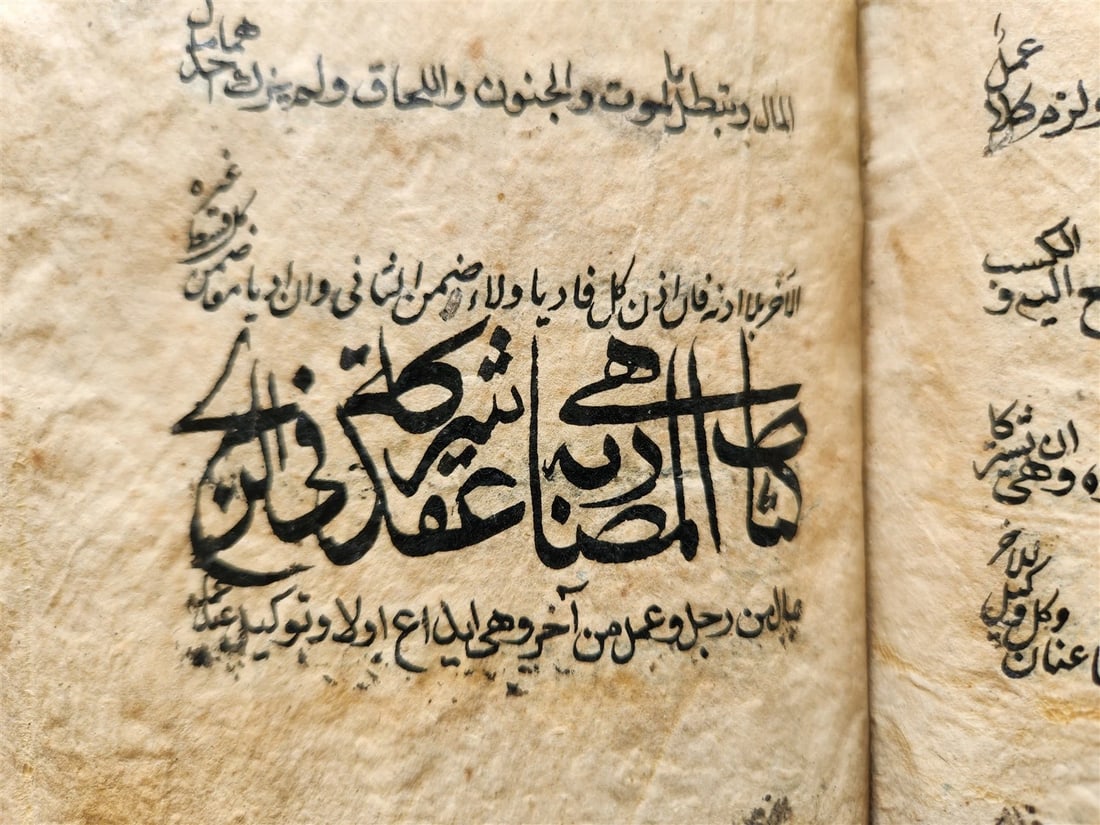 المال وتبطل بالموت والجنون واللحاق ولم يزك احدهما مال
الآخر بلا اذنه فان اذن كل فاديا ولاء ضمن الثاني وان اديا معا ضمن كل قسط غيره
كتاب المضاربة هي عقد شركة في الربح
بمال من رجل وعمل من آخر وهي ايداع اولا وتوكيل عند عمله
عمل
ولزم كلا
الكسب
ان تشركا
وهي
للآخر
وكيل
وكل
عنان